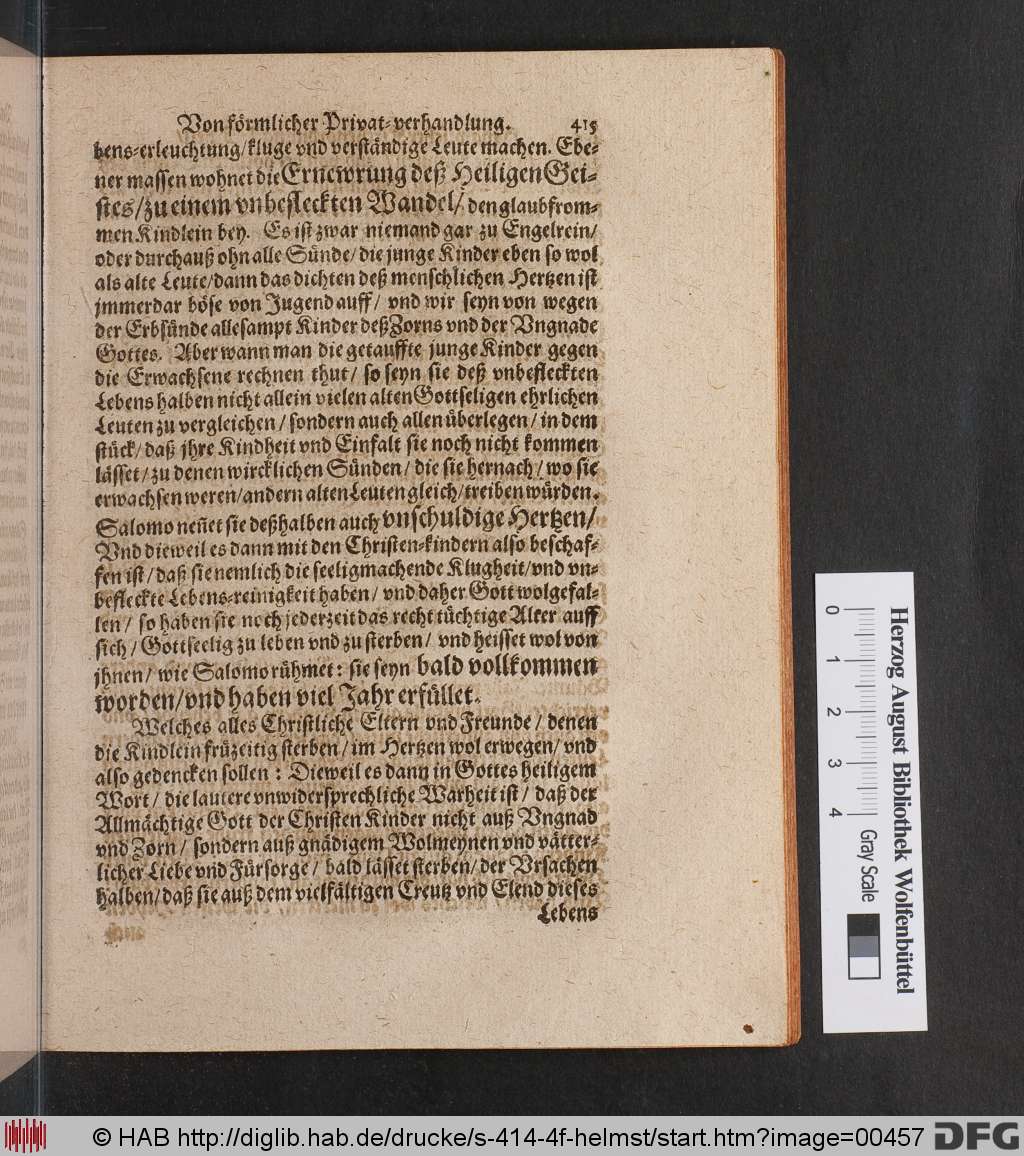 Von förmlicher Privat-verhandlung. 415
bens-erleuchtung/kluge vnd verständige Leute machen. Ebe-
ner massen wohnet die Ernewrung deß Heiligen Gei-
stes/zu einem vnbefleckten Wandel/ den glaubfrom-
men Kindlein bey. Es ist zwar niemand gar zu Engelrein/
oder durchauß ohn alle Sünde/die junge Kinder eben so wol
als alte Leute/dann das dichten deß menschlichen Hertzen ist
jmmerdar böse von Jugend auff/ vnd wir seyn von wegen
der Erbsünde allesampt Kinder deß Zorns vnd der Vngnade
Gottes. Aber wann man die getauffte junge Kinder gegen
die Erwachsene rechnen thut/ so seyn sie deß vnbefleckten
Lebens halben nicht allein vielen alten Gottseligen ehrlichen
Leuten zu vergleichen/ sondern auch allen überlegen/ in dem
stück/ daß jhre Kindheit vnd Einfalt sie noch nicht kommen
lässet/ zu denen wircklichen Sünden/ die sie hernach/ wo sie
erwachsen weren/andern alten Leuten gleich/treiben würden.
Salomo neñet sie deßhalben auch vnschuldige Hertzen/
Vnd dieweil es dann mit den Christen-kindern also beschaf-
fen ist/ daß sie nemlich die seeligmachende Klugheit/vnd vn-
befleckte Lebens-reinigkeit haben/ vnd daher Gott wolgefal-
len/ so haben sie noch jederzeit das recht tüchtige Alter auff
sich/ Gottseelig zu leben vnd zu sterben/ vnd heisset wol von
jhnen/ wie Salomo rühmet: sie seyn bald vollkommen
worden/vnd haben viel Jahr erfüllet.
Welches alles Christliche Eltern vnd Freunde/ denen
die Kindlein früzeitig sterben/ im Hertzen wol erwegen/ vnd
also gedencken sollen: Dieweil es dann in Gottes heiligem
Wort/ die lautere vnwidersprechliche Warheit ist/ daß der
Allmächtige Gott der Christen Kinder nicht auß Vngnad
vnd Zorn/ sondern auß gnädigem Wolmeynen vnd vätter-
licher Liebe vnd Fürsorge/ bald lässet sterben/ der Vrsachen
halben/ daß sie auß dem vielfältigen Creutz vnd Elend dieses
Lebens
0 1 2 3 4
Gray Scale
Herzog August Bibliothek Wolfenbüttel
© HAB http://diglib.hab.de/drucke/s-414-4f-helmst/start.htm?image=00457
DFG